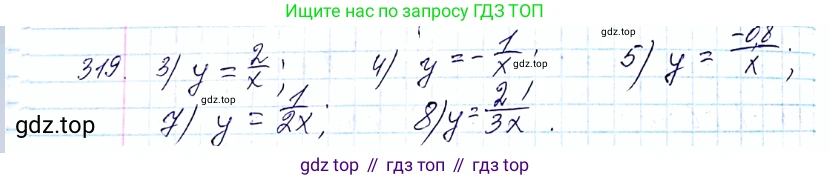 Ищите нас по запросу ГДЗ ТОП
319. 3) y = 2/x; 4) y = -1/x; 5) y = -0,8/x;
gdz.top
gdz.top
gdz.top
gdz.top
7) y = 1/2x; 8) y = 2/3x.
gdz.top
gdz.top // гдз топ // gdz.top